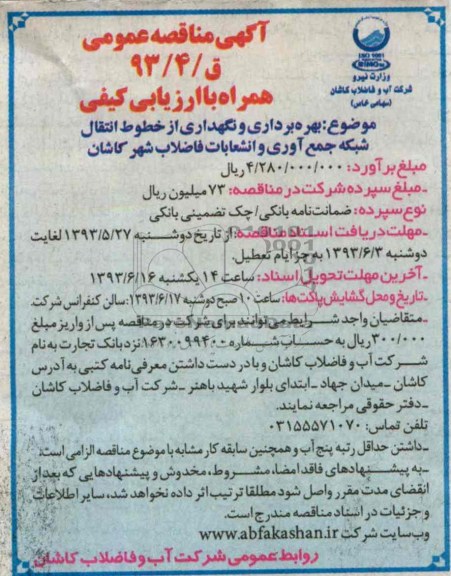 آگهی مناقصه عمومی
ق/۹۳/۴
همراه با ارزیابی کیفی
ISO 9001
وزارت نیرو
شرکت آب و فاضلاب کاشان
(سهامی خاص)
موضوع: بهره برداری و نگهداری از خطوط انتقال
شبکه جمع آوری و انشعابات فاضلاب شهر کاشان
مبلغ برآورد: ۴/۲۸۰/۰۰۰/۰۰۰ ریال
ـ مبلغ سپرده شرکت در مناقصه: ۷۳ میلیون ریال
نوع سپرده: ضمانت نامه بانکی/ چک تضمینی بانکی
ـ مهلت دریافت اسناد مناقصه: از تاریخ دوشنبه ۱۳۹۳/۵/۲۷ لغایت
دوشنبه ۱۳۹۳/۶/۳ به جز ایام تعطیل.
ـ آخرین مهلت تحویل اسناد: ساعت ۱۴ یکشنبه ۱۳۹۳/۶/۱۶
ـ تاریخ و محل گشایش پاکت ها: ساعت ۱۰ صبح دوشنبه ۱۳۹۳/۶/۱۷ سالن کنفرانس شرکت.
ـ متقاضیان واجد شرایط می توانند برای شرکت در مناقصه پس از واریز مبلغ
۳۰۰/۰۰۰ ریال به حساب شماره ۱۶۳۰۰۹۹۴۰ نزد بانک تجارت به نام
شرکت آب و فاضلاب کاشان و با در دست داشتن معرفی نامه کتبی به آدرس
کاشان ـ میدان جهاد ـ ابتدای بلوار شهید باهنر ـ شرکت آب و فاضلاب کاشان
ـ دفتر حقوقی مراجعه نمایند.
تلفن تماس: ۰۳۱۵۵۵۷۱۰۷۰
ـ داشتن حداقل رتبه پنج آب و همچنین سابقه کار مشابه با موضوع مناقصه الزامی است.
ـ به پیشنهادهای فاقد امضا، مشروط، مخدوش و پیشنهادهایی که بعد از
انقضای مدت مقرر واصل شود مطلقا ترتیب اثر داده نخواهد شد، سایر اطلاعات
و جزئیات در اسناد مناقصه مندرج است.
وب سایت شرکت www.abfakashan.ir
روابط عمومی شرکت آب و فاضلاب کاشان